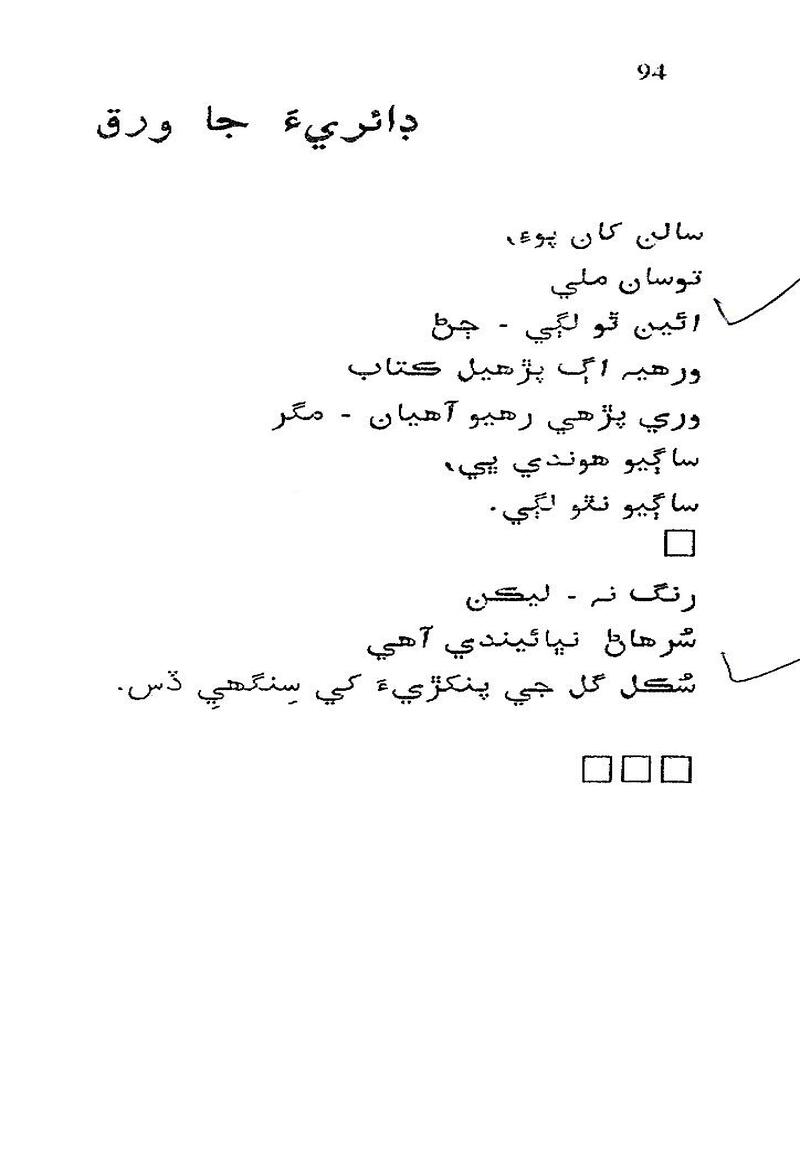 94
ڊائريءَ جا ورق
سالن کان پوءِ،
توسان ملي
ائين ٿو لڳي - ڄڻ
ورهيه اڳ پڙهيل ڪتاب
وري پڙهي رهيو آهيان - مگر
ساڳيو هوندي ڀي،
ساڳيو نٿو لڳي.
رنگ نہ - ليڪن
سُرهاڻ نڀائيندي آهي
سُڪل گل جي پنکڙيءَ کي سِنگهيِ ڏس.